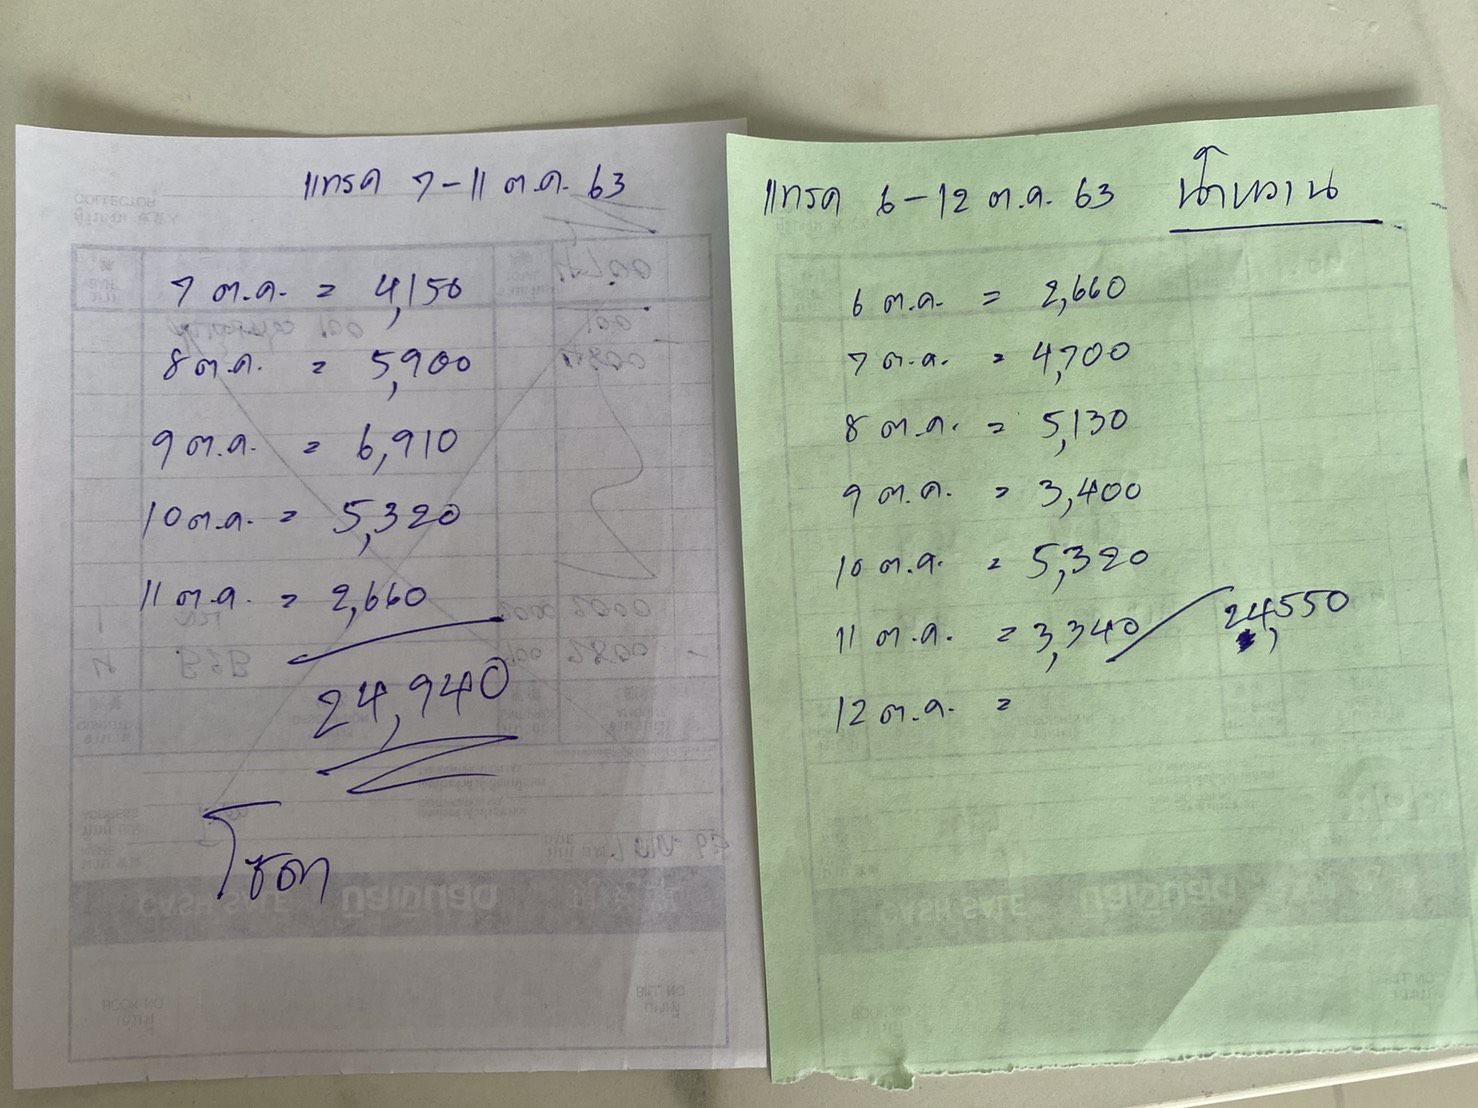 แทรค 7-11 ต.ค. 63
7 ต.ค. = 4,150
8 ต.ค. = 5,900
9 ต.ค. = 6,910
10 ต.ค. = 5,320
11 ต.ค. = 2,660
24,940
โซดา
แทรค 6-12 ต.ค. 63 น้ำหวาน
6 ต.ค. = 2,660
7 ต.ค. = 4,700
8 ต.ค. = 5,130
9 ต.ค. = 3,400
10 ต.ค. = 5,320
11 ต.ค. = 3,340 24,550
12 ต.ค. =